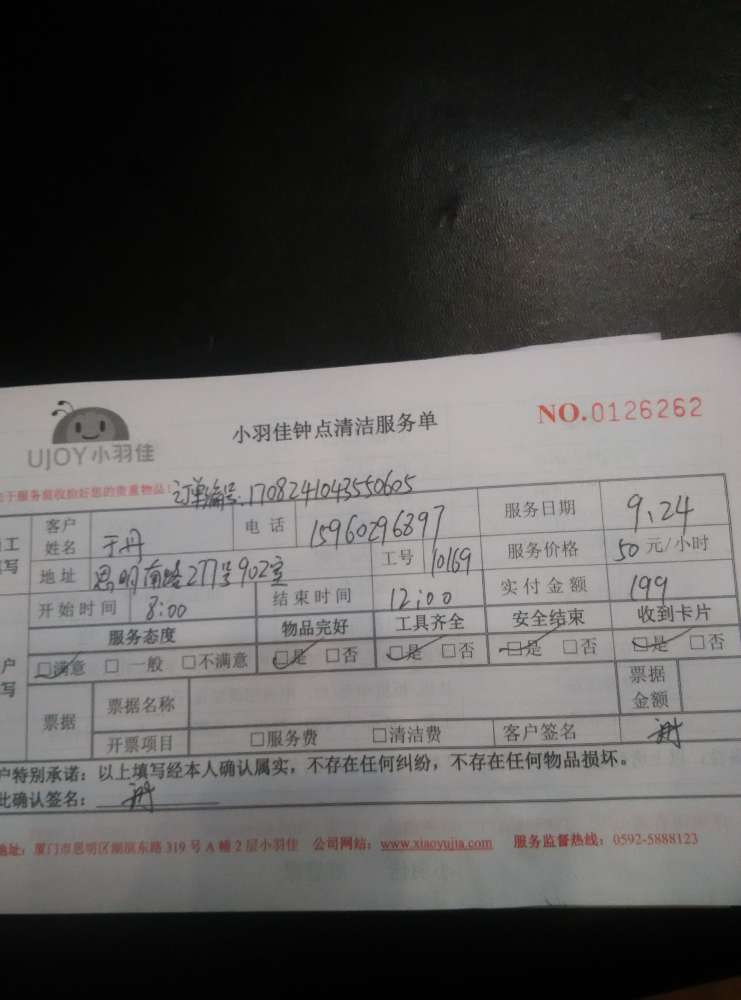 UJOY小羽佳
小羽佳钟点清洁服务单
NO.0126262
于服务前收拾好您的贵重物品!
订单编号:1708241043550605
客户姓名 于丹 电话 15960296897 服务日期 9、24
地址 思明南路277号902室 工号 10169 服务价格 50元/小时
开始时间 8:00 结束时间 12:00 实付金额 199
服务态度 物品完好 工具齐全 安全结束 收到卡片
□满意 □一般 □不满意 □是 □否 □是 □否 □是 □否 □是 □否
票据 票据名称 票据金额
开票项目 □服务费 □清洁费 客户签名
户特别承诺:以上填写经本人确认属实,不存在任何纠纷,不存在任何物品损坏。
此确认签名:
地址:厦门市思明区湖滨东路319号A幢2层小羽佳 公司网站:www.xiaoyujia.com 服务监督热线:0592-5888123